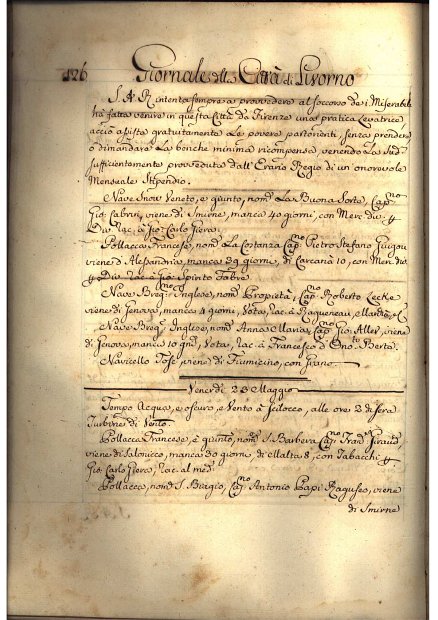 126 Giornale della Città di Livorno
S. A. R. intenta sempre a provvedere al soccorso de i Miserabili
hà fatta venire in questa Città da Firenze una pratica Levatrice
acciò assista gratuitamente Le povere partorienti, senza prendere
o dimandare La benche minima ricompensa venendo La Sud.
sufficientemente provveduta dall' Erario Regio di un onorevole
Mensuale Stipendio.
Nave Snow Veneto, e giunto, nom.ª La Buona Sorte, Cap.no
Gio. Cabrini, viene di Smirne, manca 40 giorni, con Merc. div. p.
Div. rac. à Gio. Carlo Giera.
Pollacca Francese, nom.ª La Costanza Cap.no Pietro Stefano Guigou
viene d'Alessandria, manca 29 giorni, di 10, con Mer. div.
p. Div. rac. à Gio. Spirito Fabre.
Nave Brig.no Inglese, nom.ª Propietà, Cap.no Roberto Lecke
viene di Genova, manca 4 giorni, Vota, rac. à Ragueneau,
Nave Brig.no Inglese, nom.ª Anna e Maria, Cap.no Gio. Aller, viene
di Genova, manca 10 gni, Vota, rac. à Francesco d'Ono.to Berta.
Navicello Tosc. viene di Fiumicino, con Grano.
Venerdì 23 Maggio
Tempo Acqua, e oscuro, e Vento à Scilocco, alle ore 2 di sera
Turbine di Vento.
Pollacca Francese, è giunto, nom.ª S. Barbera Cap.no Fran.co Giraud
viene di Salonicco, manca 30 giorni di Malta 8, con Tabacchi p.
Gio. Carlo Giera, rac. al med.
Pollacca, nom.ª S. Biagio, Cap.no Antonio Papi Raguseo, viene
di Smirne